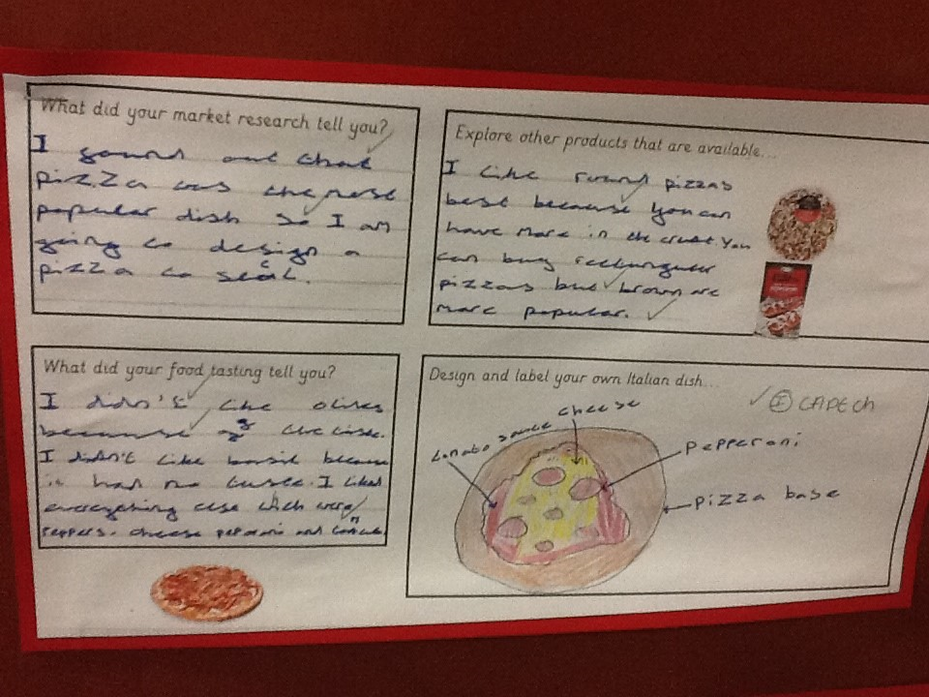 What did your market research tell you?
I found out that
pizza was the most
popular dish so I am
going to design a
pizza to
Explore other products that are available...
I like round pizzas
best because you can
have more in the crust. You
can buy
pizzas but are
more popular.
What did your food tasting tell you?
I didn't like olives
because of the taste.
I didn't like basil because
it had no taste. I liked
everything else which were
peppers, cheese and
Design and label your own Italian dish...
tomato sauce
cheese
pepperoni
pizza base